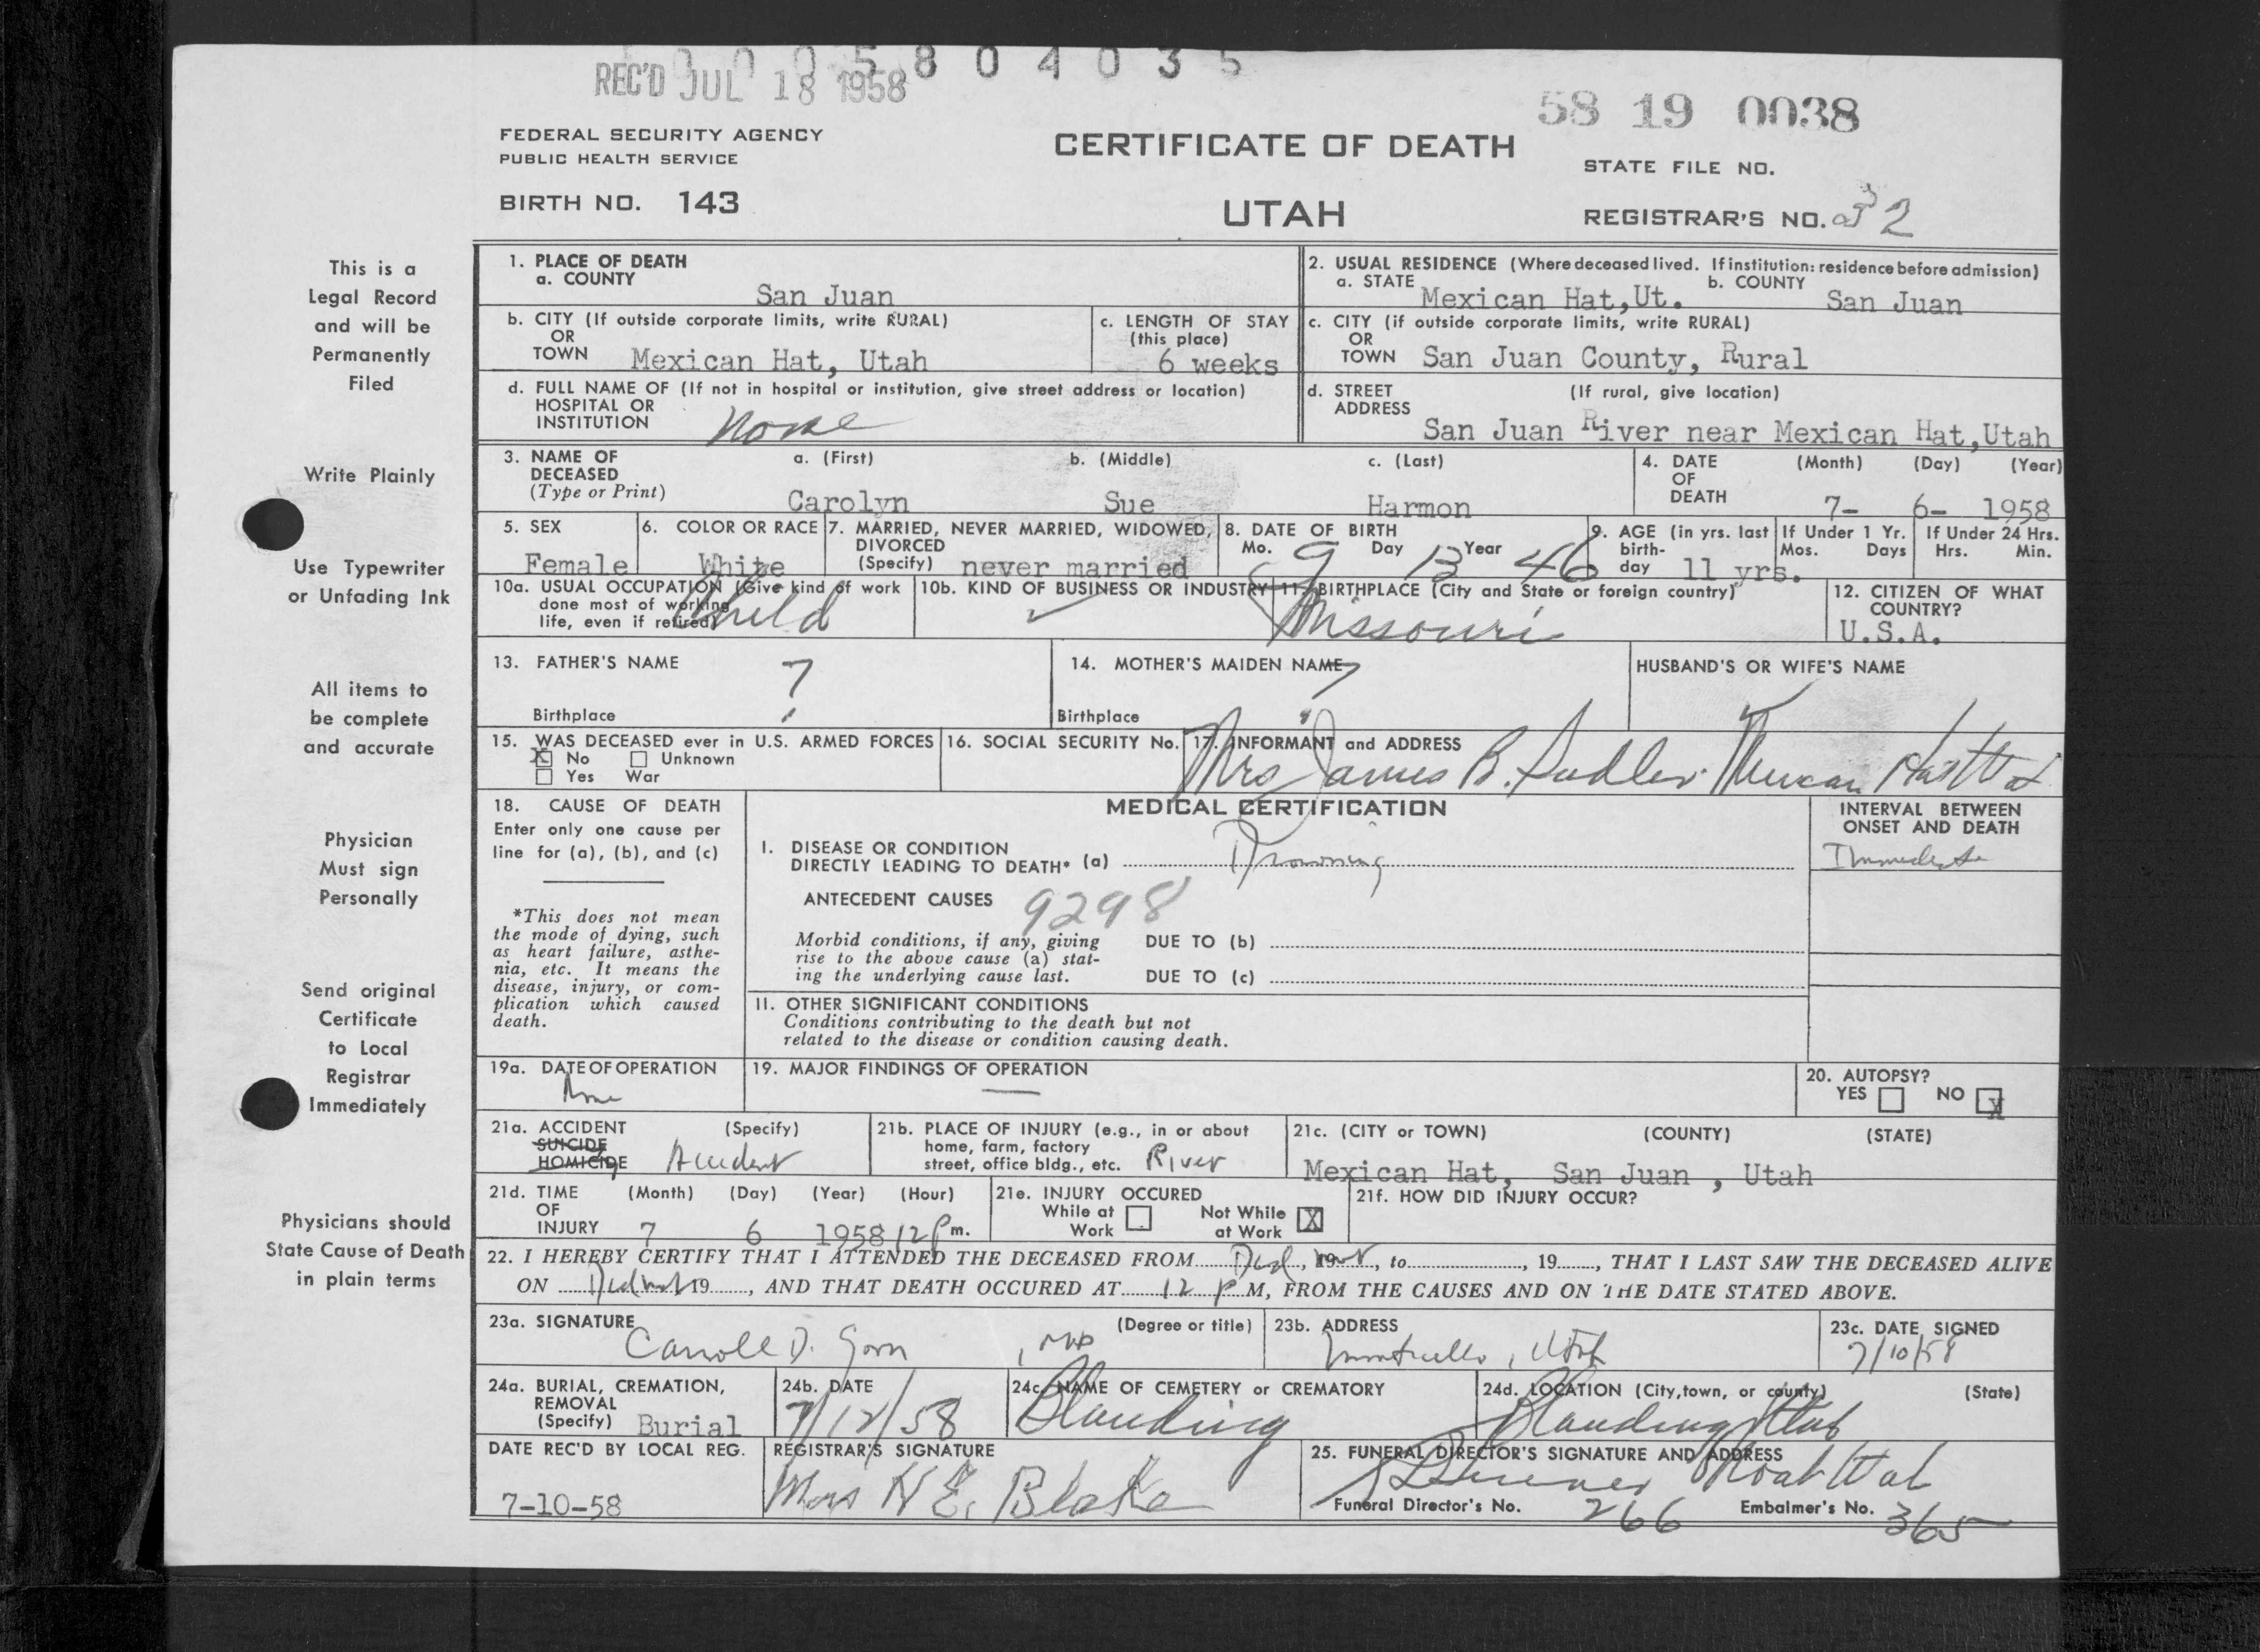 0 0 0 5 8 0 4 0 3 5
REC'D JUL 18 1958
58 19 0038
FEDERAL SECURITY AGENCY
PUBLIC HEALTH SERVICE
CERTIFICATE OF DEATH
STATE FILE NO.
BIRTH NO. 143
UTAH
REGISTRAR'S NO. 32
This is a
Legal Record
and will be
Permanently
Filed
Write Plainly
Use Typewriter
or Unfading Ink
All items to
be complete
and accurate
Physician
Must sign
Personally
Send original
Certificate
to Local
Registrar
Immediately
Physicians should
State Cause of Death
in plain terms
1. PLACE OF DEATH
a. COUNTY
San Juan
2. USUAL RESIDENCE (Where deceased lived. If institution: residence before admission)
a. STATE Mexican Hat, Ut. b. COUNTY San Juan
b. CITY (If outside corporate limits, write RURAL)
OR
TOWN Mexican Hat, Utah
c. LENGTH OF STAY
(this place)
6 weeks
c. CITY (if outside corporate limits, write RURAL)
OR
TOWN San Juan County, Rural
d. FULL NAME OF (If not in hospital or institution, give street address or location)
HOSPITAL OR
INSTITUTION None
d. STREET (If rural, give location)
ADDRESS
San Juan River near Mexican Hat, Utah
3. NAME OF a. (First) b. (Middle) c. (Last)
DECEASED
(Type or Print) Carolyn Sue Harmon
4. DATE (Month) (Day) (Year)
OF
DEATH 7- 6- 1958
5. SEX
Female
6. COLOR OR RACE
White
7. MARRIED, NEVER MARRIED, WIDOWED,
DIVORCED
(Specify) never married
8. DATE OF BIRTH
Mo. 9 Day 13 Year 46
9. AGE (in yrs. last
birth-
day 11 yrs.
If Under 1 Yr.
Mos. Days
If Under 24 Hrs.
Hrs. Min.
10a. USUAL OCCUPATION (Give kind of work
done most of working
life, even if retired) Child
10b. KIND OF BUSINESS OR INDUSTRY
11. BIRTHPLACE (City and State or foreign country)
Missouri
12. CITIZEN OF WHAT
COUNTRY?
U.S.A.
13. FATHER'S NAME ?
Birthplace
14. MOTHER'S MAIDEN NAME ?
Birthplace
HUSBAND'S OR WIFE'S NAME
15. WAS DECEASED ever in U.S. ARMED FORCES
X No Unknown
Yes War
16. SOCIAL SECURITY No.
17. INFORMANT and ADDRESS
Mrs James B. Mexican Hat Utah
18. CAUSE OF DEATH
Enter only one cause per
line for (a), (b), and (c)
*This does not mean
the mode of dying, such
as heart failure, asthe-
nia, etc. It means the
disease, injury, or com-
plication which caused
death.
MEDICAL CERTIFICATION
INTERVAL BETWEEN
ONSET AND DEATH
I. DISEASE OR CONDITION
DIRECTLY LEADING TO DEATH* (a) Drowning
Immediate
ANTECEDENT CAUSES 9298
Morbid conditions, if any, giving DUE TO (b)
rise to the above cause (a) stat-
ing the underlying cause last. DUE TO (c)
II. OTHER SIGNIFICANT CONDITIONS
Conditions contributing to the death but not
related to the disease or condition causing death.
19a. DATE OF OPERATION
None
19. MAJOR FINDINGS OF OPERATION
—
20. AUTOPSY?
YES NO X
21a. ACCIDENT (Specify)
SUICIDE
HOMICIDE Accident
21b. PLACE OF INJURY (e.g., in or about
home, farm, factory
street, office bldg., etc. River
21c. (CITY or TOWN) (COUNTY) (STATE)
Mexican Hat, San Juan , Utah
21d. TIME (Month) (Day) (Year) (Hour)
OF
INJURY 7 6 1958 12 p m.
21e. INJURY OCCURED
While at Not While X
Work at Work
21f. HOW DID INJURY OCCUR?
22. I HEREBY CERTIFY THAT I ATTENDED THE DECEASED FROM Did, 19 not, to , 19 , THAT I LAST SAW THE DECEASED ALIVE
ON Did not 19 , AND THAT DEATH OCCURED AT 12 P M, FROM THE CAUSES AND ON THE DATE STATED ABOVE.
23a. SIGNATURE (Degree or title)
Carroll D. Goon , MD
23b. ADDRESS
Monticello, Utah
23c. DATE SIGNED
7/10/58
24a. BURIAL, CREMATION,
REMOVAL
(Specify) Burial
24b. DATE
7/12/58
24c. NAME OF CEMETERY or CREMATORY
Blanding
24d. LOCATION (City, town, or county) (State)
Blanding Utah
DATE REC'D BY LOCAL REG.
7-10-58
REGISTRAR'S SIGNATURE
Mrs H E. Blake
25. FUNERAL DIRECTOR'S SIGNATURE AND ADDRESS
Moab Utah
Funeral Director's No. 266 Embalmer's No. 365